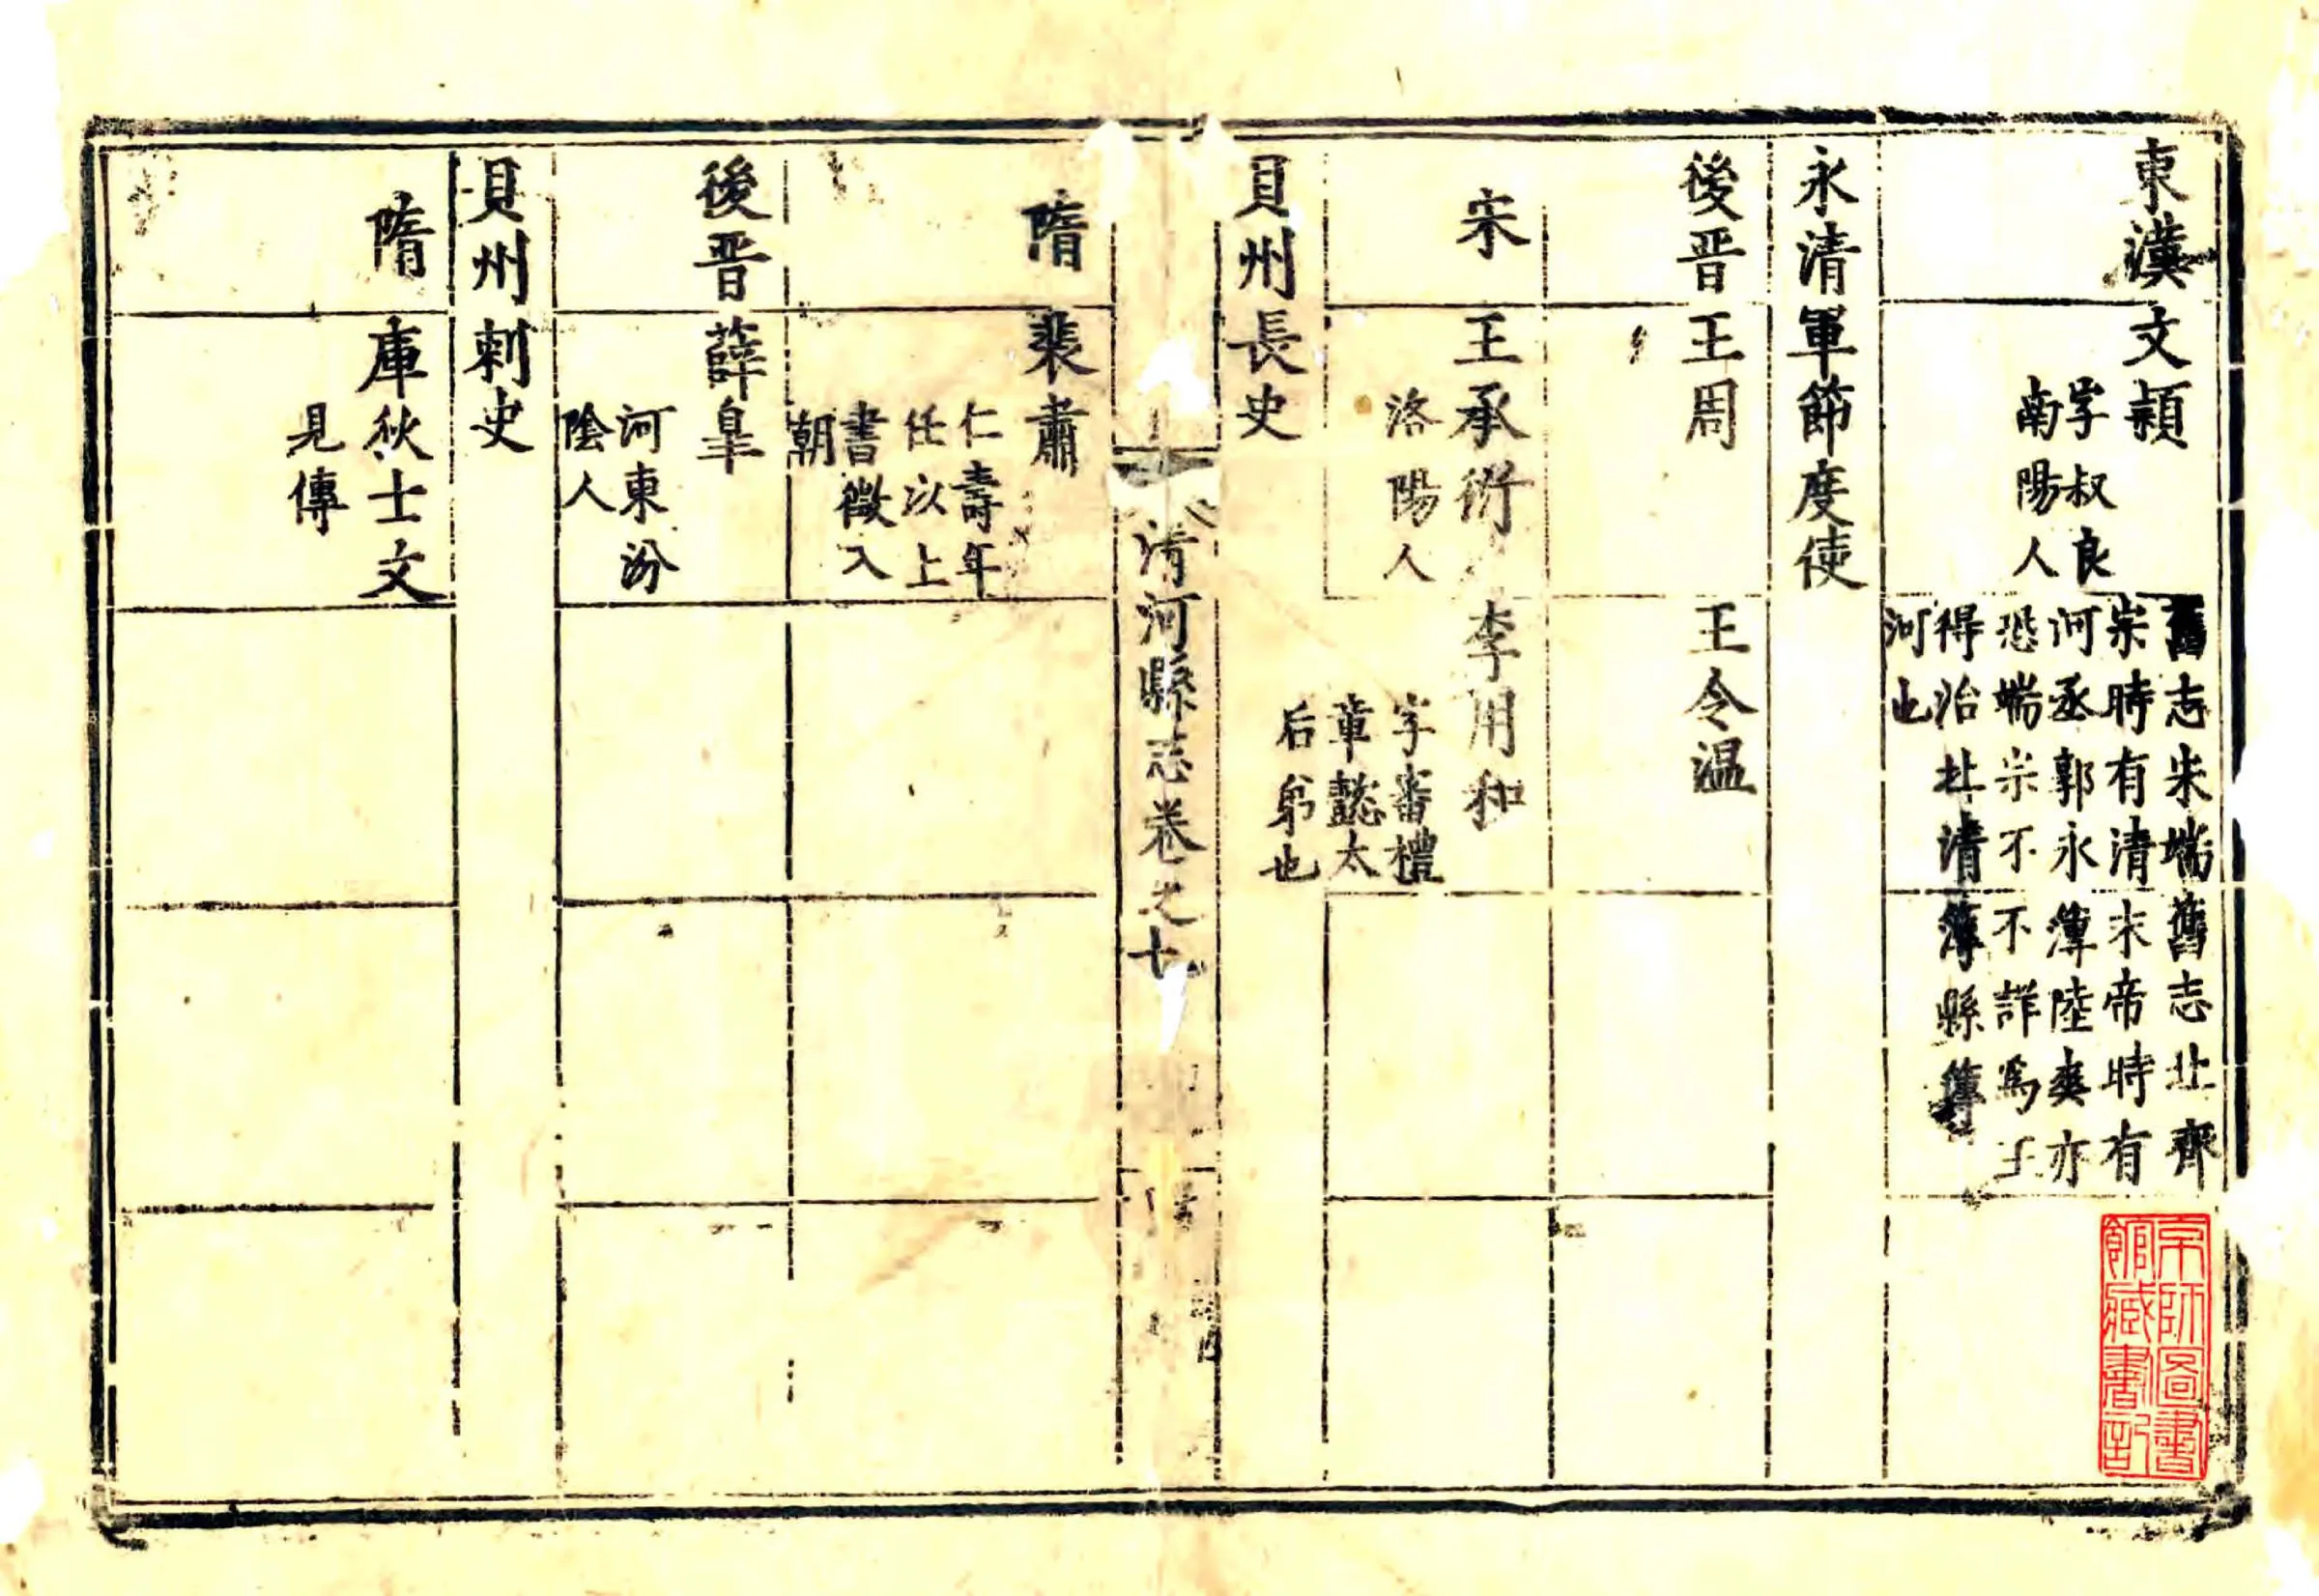 東漢 文穎
字叔良
南陽人
舊志宋端舊志北齊
宗時有清末帝時有
河丞郭永簿陸爽亦
恐端宗不不詳為
得治北清簿縣簿
河也
永清軍節度使
後晋 王周 王令溫
宋 王承衍 李用和
洛陽人
字審禮
章懿太
后弟也
貝州長史
清河縣志卷之十
隋 裴肅
仁壽年
任以上
書徵入
朝
後晋 薛皐
河東汾
陰人
貝州刺史
隋 庫狄士文
見傳
京師圖書
館藏書記